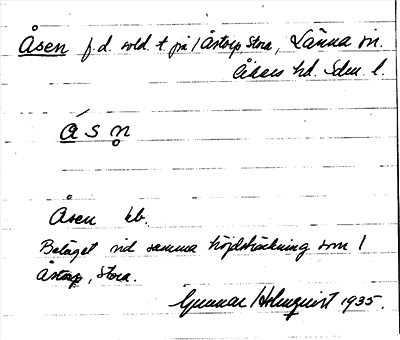 Åsen f.d. sold. t. på 1 Åstorp, Stora, Länna sn.
Åkers hd. Sdm. l.
á s n̥
Åsen hb.
Beläget vid samma höjdsträckning som 1
Åstorp, Stora.
Gunnar Holmquist 1935.